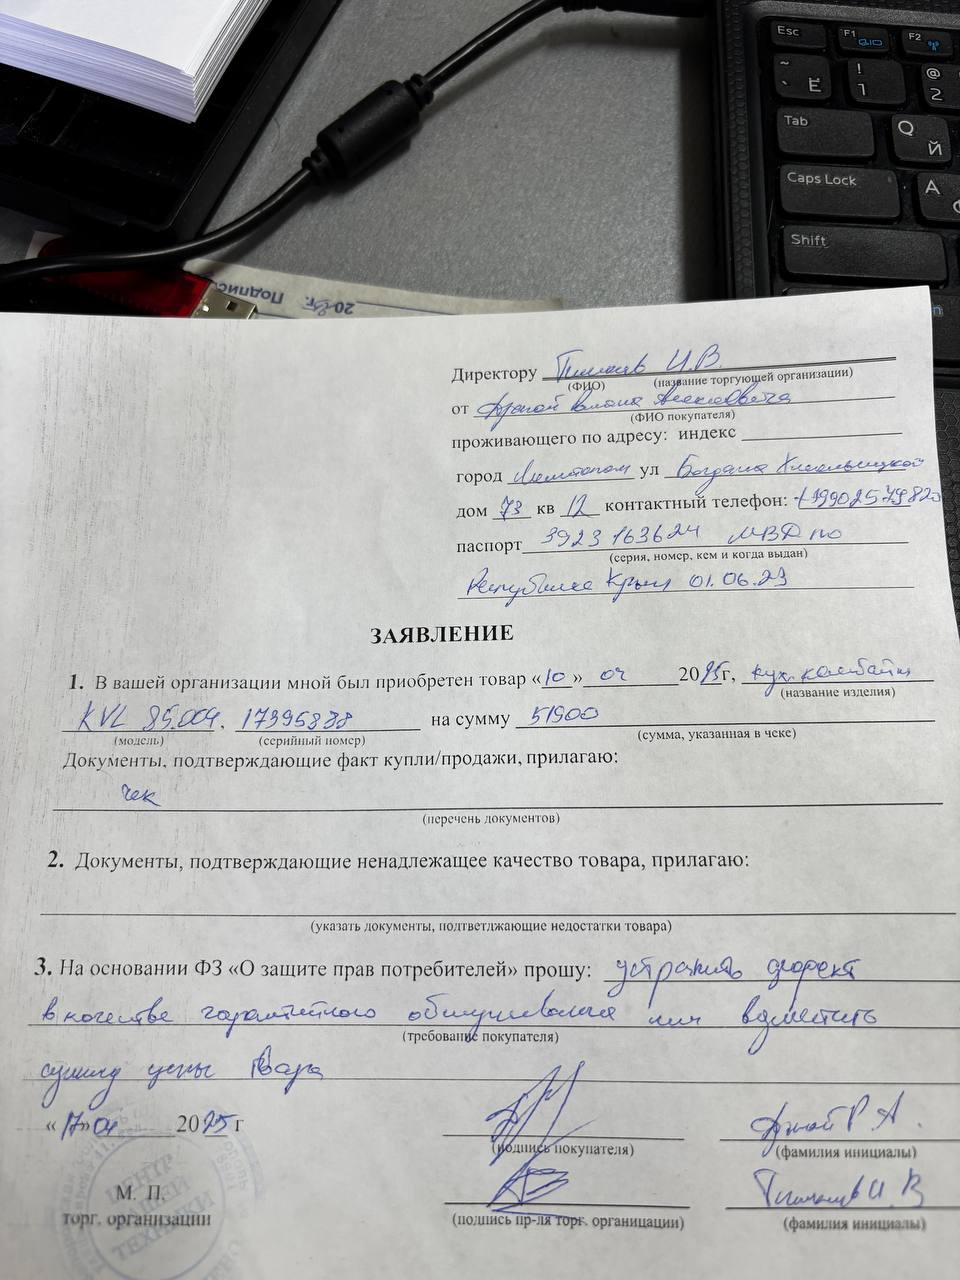 Esc F1 F2
~ ` Ё ! 1 @ 2
Tab Q Й
Caps Lock A
Shift
Подпись 20 г.
Директору И.В.
(ФИО) (название торгующей организации)
от Алексеевича
(ФИО покупателя)
проживающего по адресу: индекс
город ул Богдана Хмельницкой
дом 73 кв 12 контактный телефон: +79902579820
паспорт 3923 163624 МВД по
(серия, номер, кем и когда выдан)
Республике Крым 01.06.23
ЗАЯВЛЕНИЕ
1. В вашей организации мной был приобретен товар «10» 04 2025г, кух.комбайн
(название изделия)
KVL 85.004. 17395838 на сумму 51900
(модель) (серийный номер) (сумма, указанная в чеке)
Документы, подтверждающие факт купли/продажи, прилагаю:
чек
(перечень документов)
2. Документы, подтверждающие ненадлежащее качество товара, прилагаю:
(указать документы, подтветджающие недостатки товара)
3. На основании ФЗ «О защите прав потребителей» прошу: устранить дефект
в качестве гарантийного обслуживания или возместить
(требование покупателя)
сумму цены товара
«17» 04 2025 г
(подпись покупателя) (фамилия инициалы)
М. П. И. В
торг. организации (подпись пр-ля торг. органицации) (фамилия инициалы)
ЦЕНТР
ТЕХНИКИ